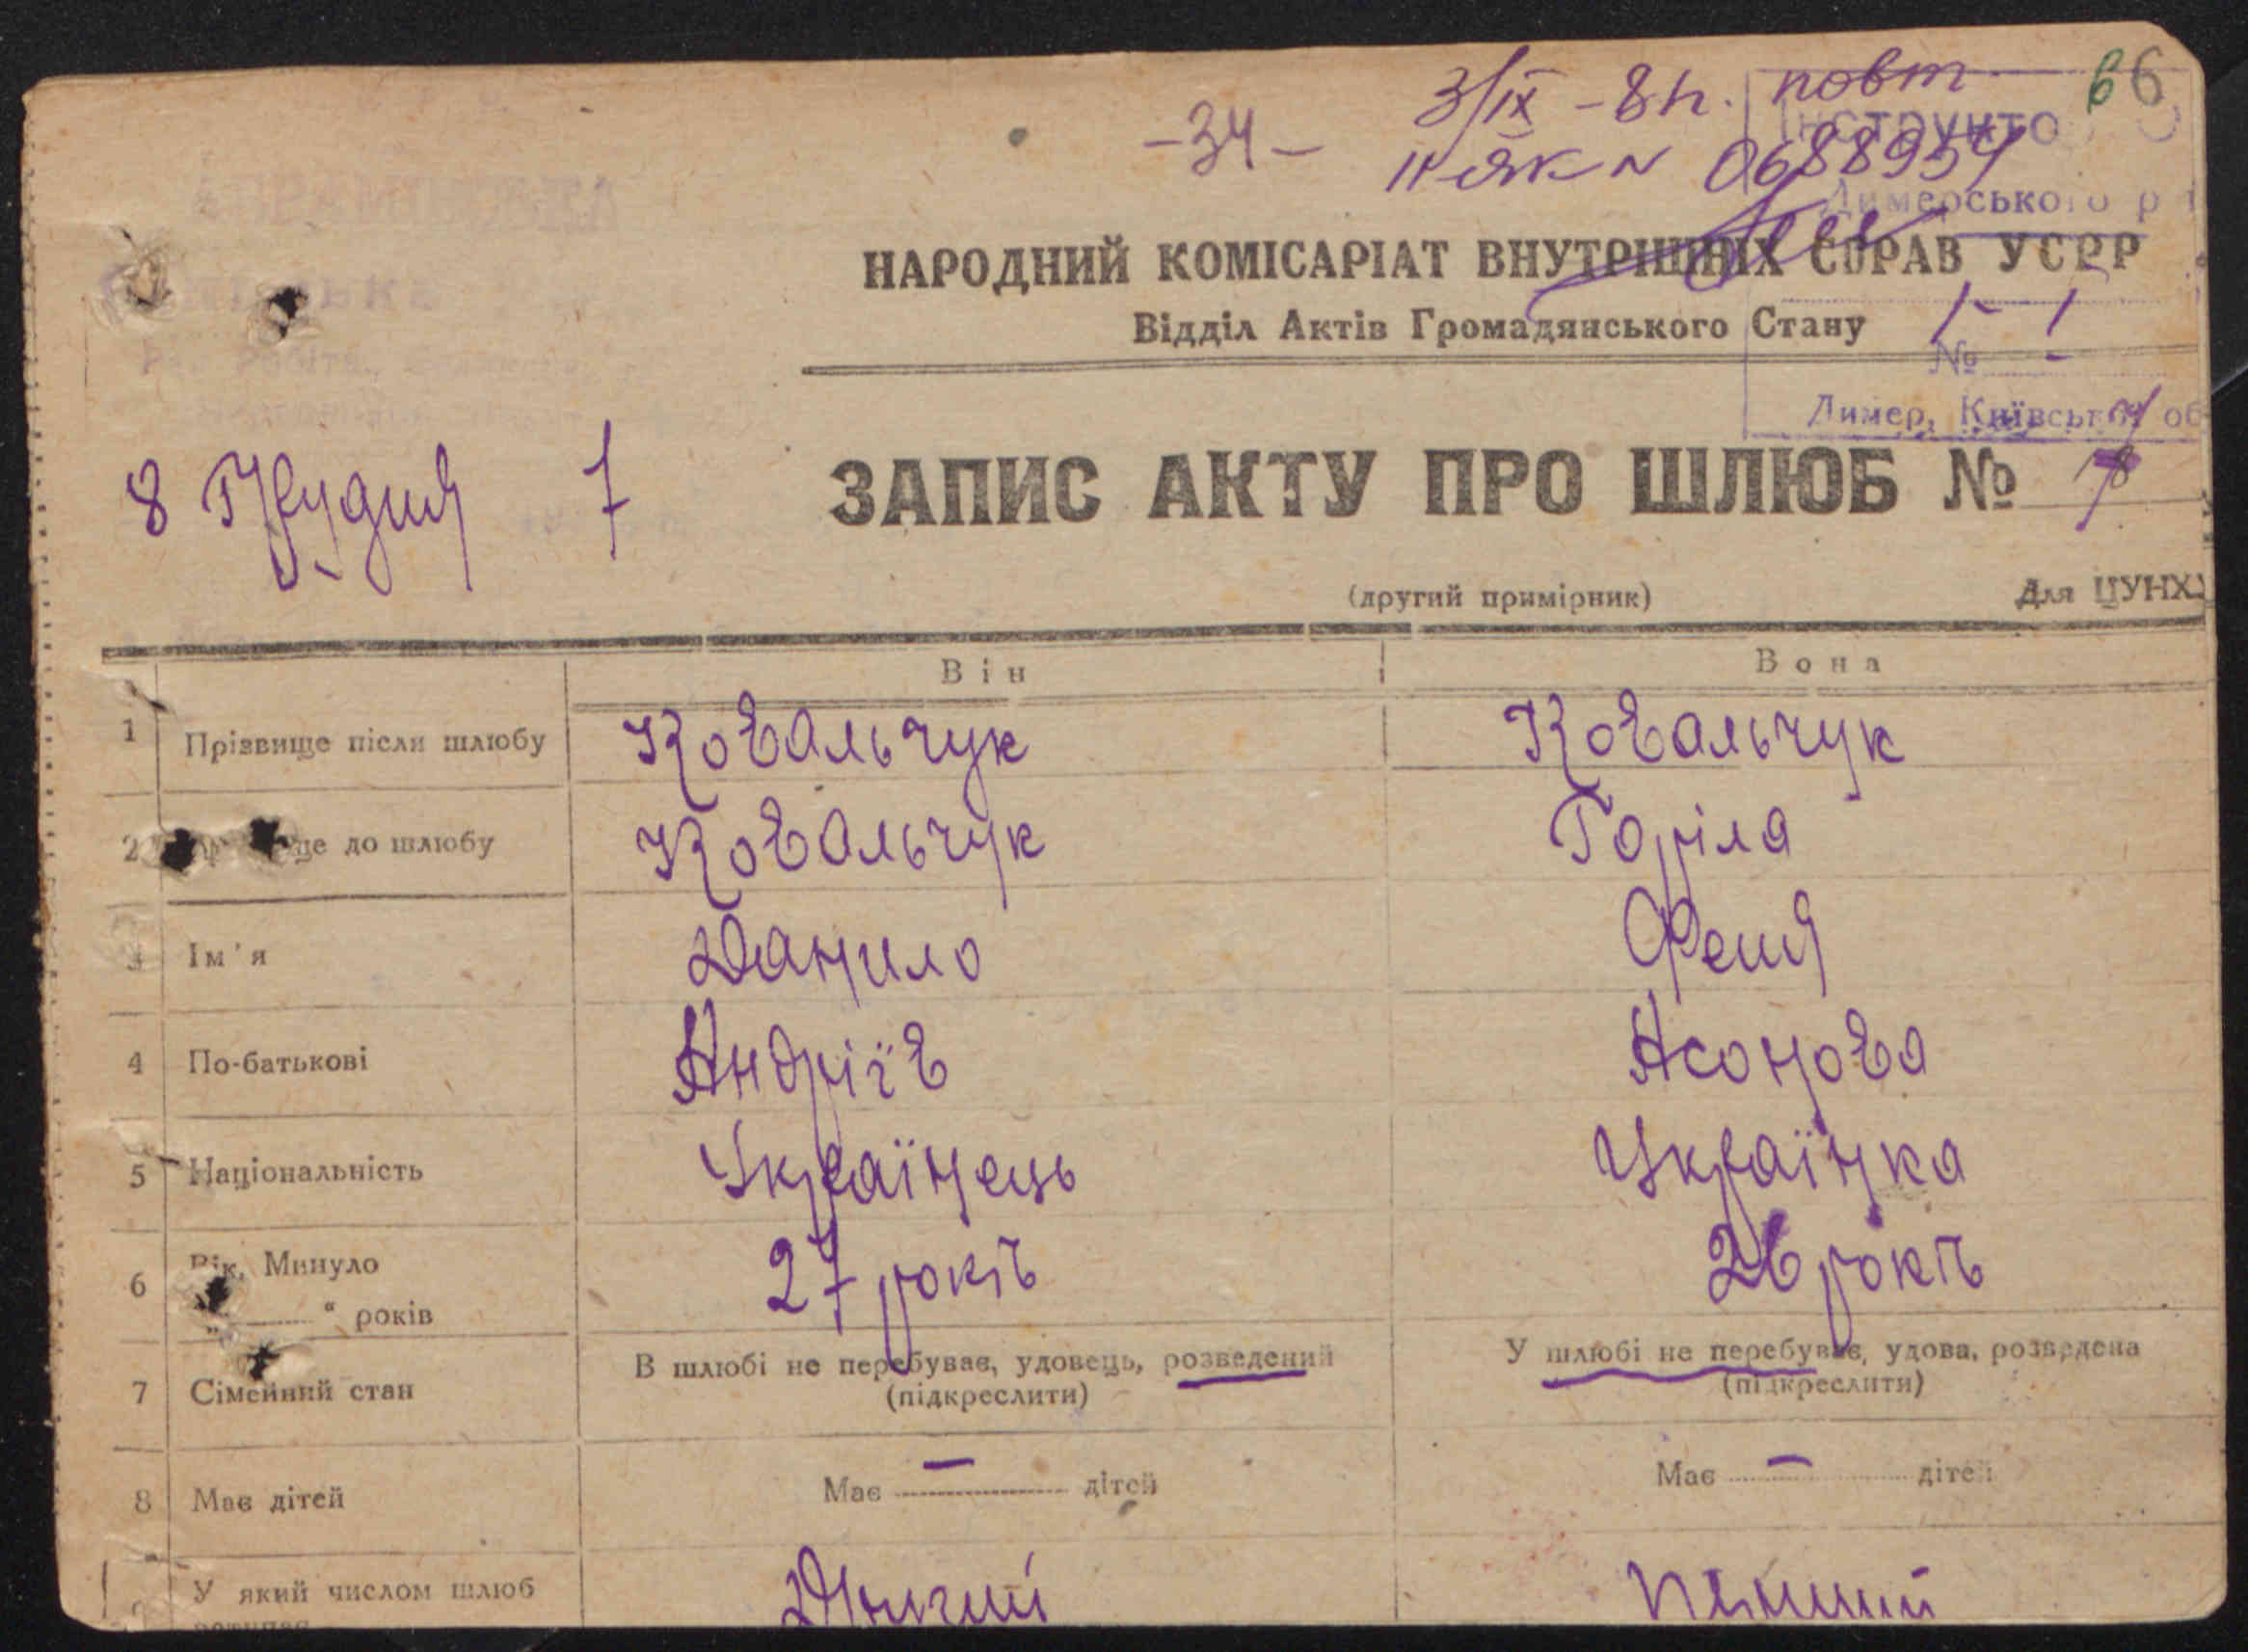 66
3/IX - 8 р. повт
-34-
Інструкто
н як N 0688954
АБРАМІВСЬКА
Димерського р
НАРОДНИЙ КОМІСАРІАТ ВНУТРІШНІХ СПРАВ УСРР
Відділ Актів Громадянського Стану
№ -
Димер, Київської об
8 Грудня 7
ЗАПИС АКТУ ПРО ШЛЮБ №
(другий примірник) Для ЦУНХУ
Він Вона
1 Прізвище після шлюбу Ковальчук Ковальчук
2 це до шлюбу Ковальчук Горіла
3 Ім'я Данило Феня
4 По-батькові Андріїв Асонова
5 Національність Українець Українка
6 Вік, Минуло 27 років 26 років
„ “ років
7 Сімейний стан В шлюбі не перебуває, удовець, розведений У шлюбі не перебуває, удова, розведена
(підкреслити) (підкреслити)
8 Має дітей Має — дітей Має — дітей
У який числом шлюб Другий Перший